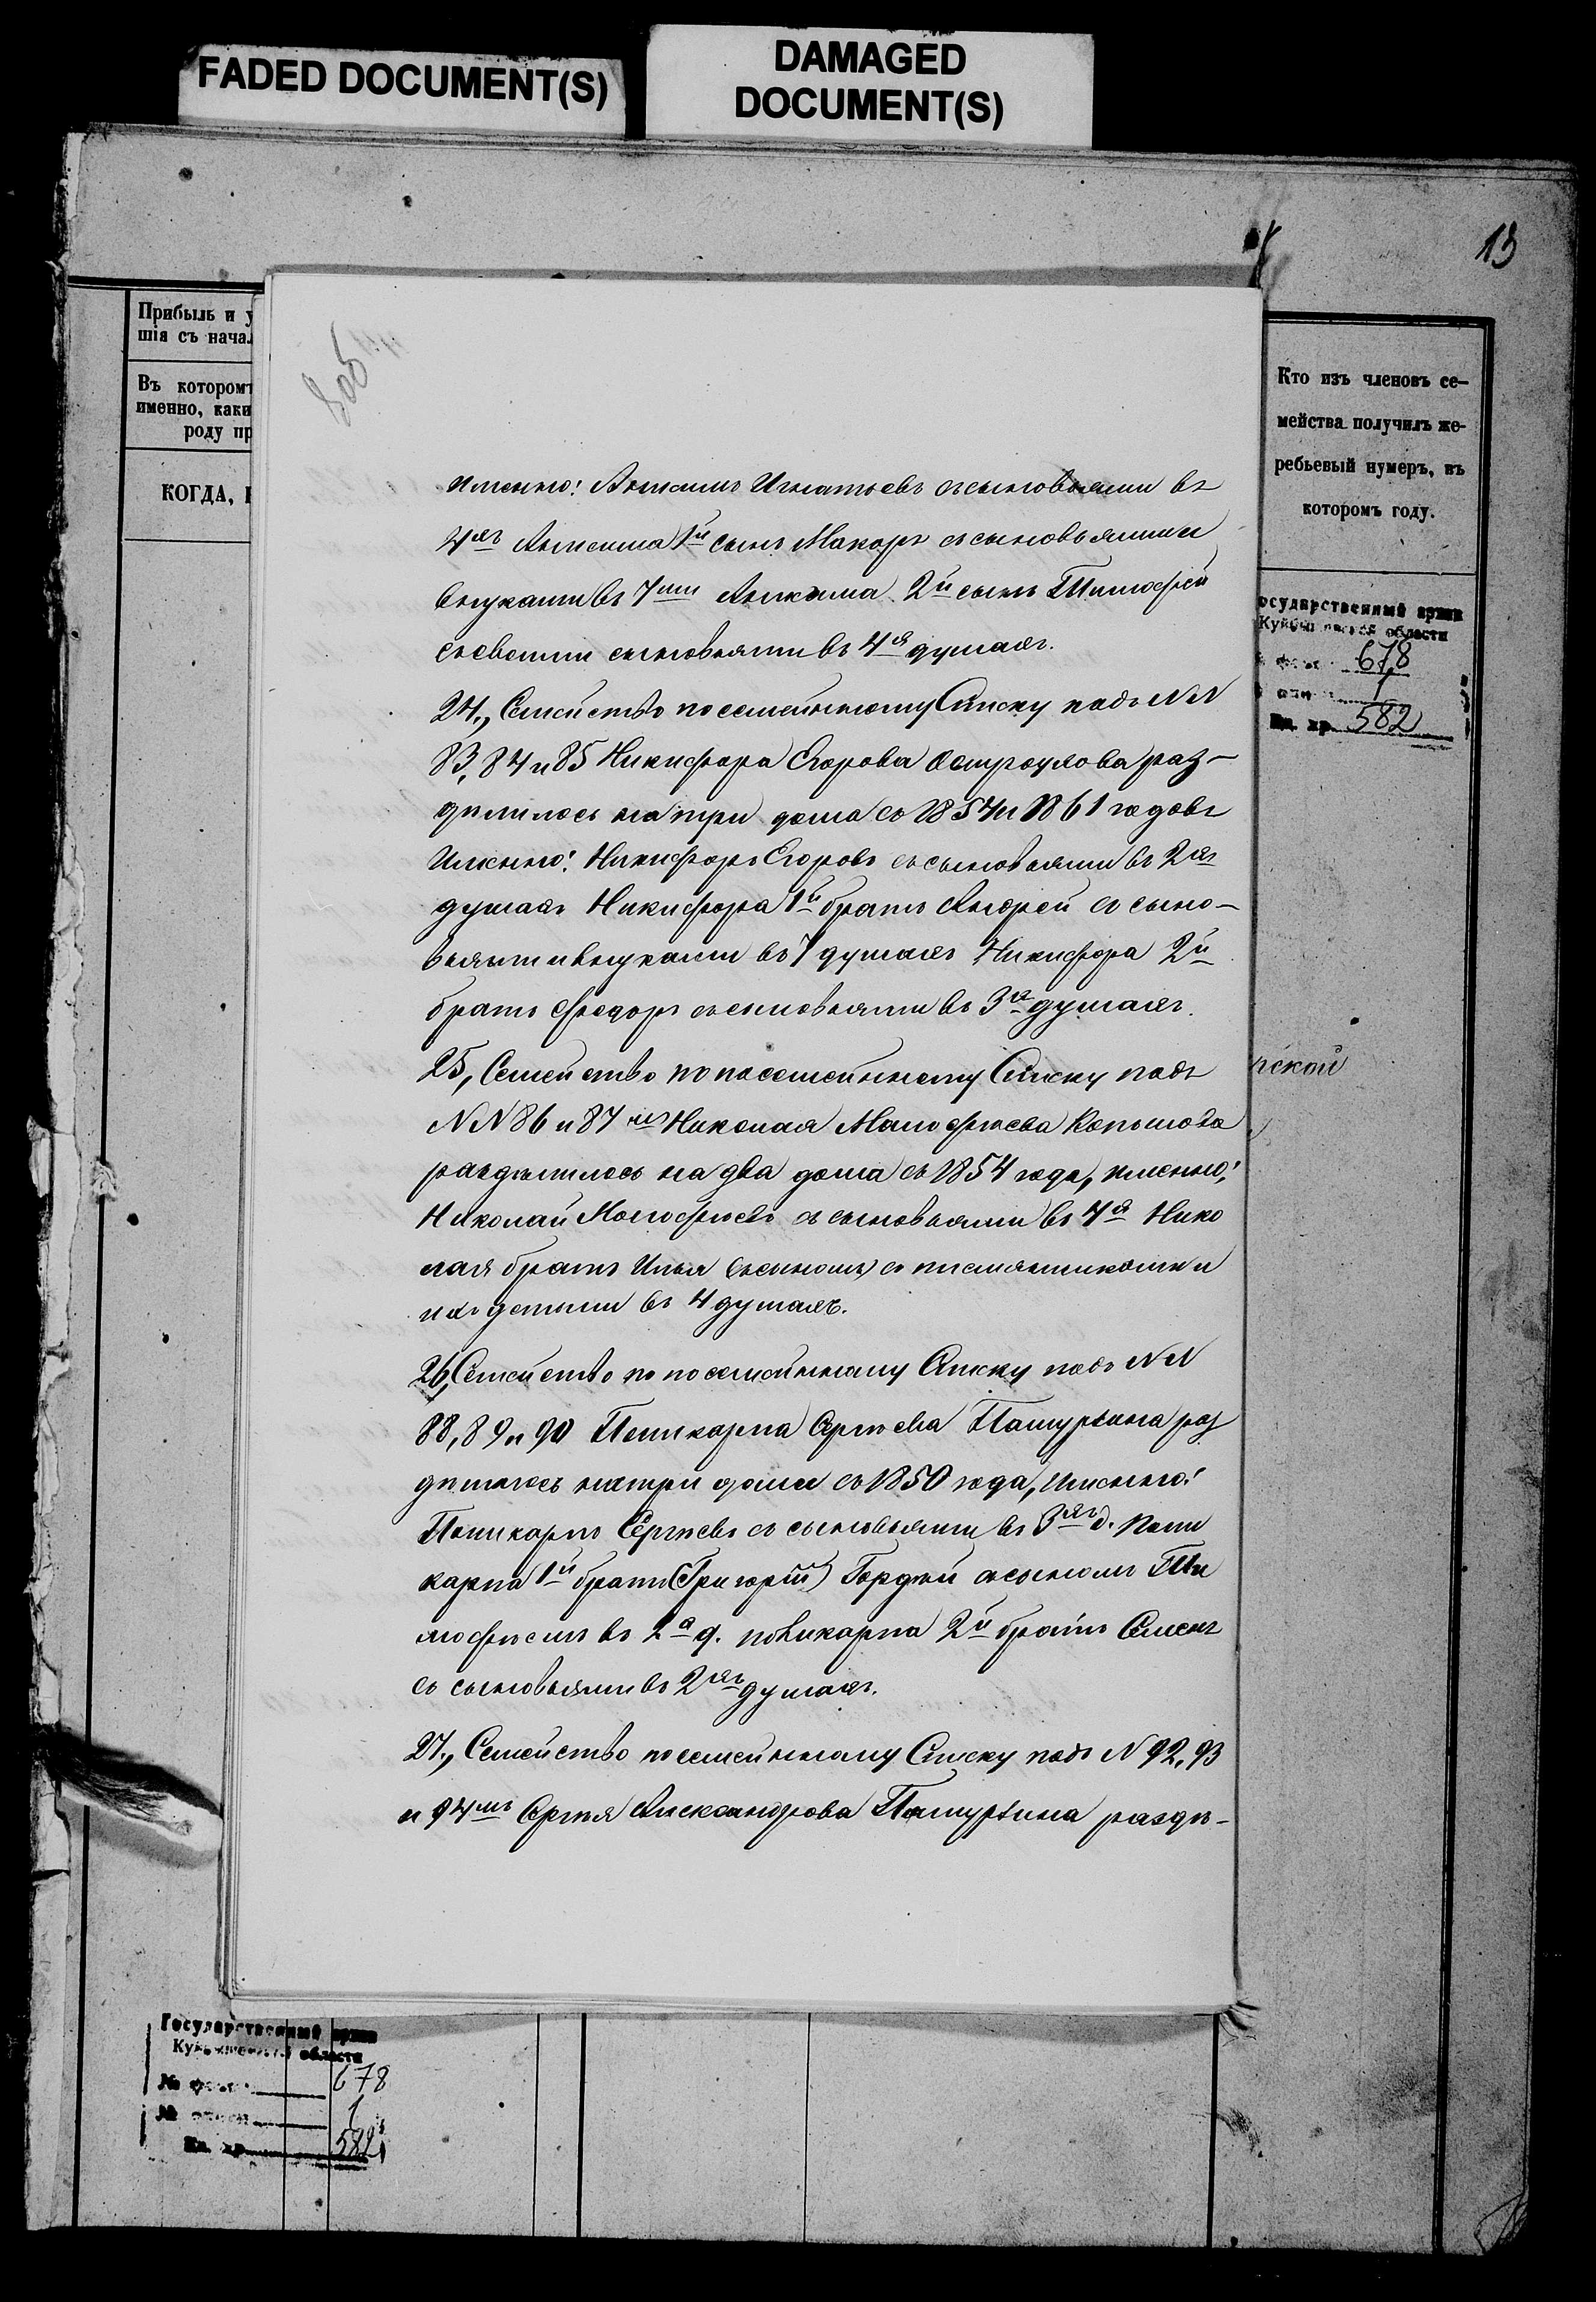 FADED DOCUMENT(S)
DAMAGED
DOCUMENT(S)
13
Прибыль и у
шія съ начал
Въ которомъ
именно, каки
роду пр
КОГДА,
Кто изъ членовъ се-
мейства получилъ же-
ребьевый нумеръ, въ
которомъ году.
осударственный архив
области
678
1
582
именно: Игнатьевъ съ сыновьями въ
4хъ 1й сынъ Макаръ съ сыновьями и
внуками въ 7ми 2й сынъ Тимофей
съ своими сыновьями въ 4я душахъ.
24., Семейство по семейному Списку подъ NN
83, 84 и 85 Никифора Егорова раз-
дѣлилось на три дома съ 1854 и 1861 годовъ
Именно: Никифоръ Егоровъ съ сыновьями въ 2хъ
душахъ Никифора 1й братъ Андрей съ сыно-
вьями и внуками въ 7 душахъ Никифора 2й
братъ Федоръ съ сыновьями въ 3хъ душахъ.
25, Семейство по посемейному Списку подъ
NN 86 и 87 Николая
раздѣлилось на два дома съ 1854 года, именно:
Николай съ сыновьями въ 4я Нико
лая братъ Илья съ сыномъ съ племянниками и
ихъ детьми въ 4 душахъ.
26, Семейство по посемейному Списку подъ NN
88, 89 и 90 Поликарпа Сергѣева раз
дѣлилось на три дома съ 1850 года, Именно:
Поликарпъ Сергѣевъ съ сыновьями въ 3хъ д. Поли
карпа 1й братъ (Григорій) Гордѣй съ сыномъ Ти
мофѣемъ въ 2а д. поликарпа 2й братъ Семенъ
съ сыновьями въ 2хъ душахъ.
27., Семейство по семейному Списку подъ N 92, 93
и 94мъ Сергѣя Александрова раздѣ-
ской
Государственный архив
области
678
1
582